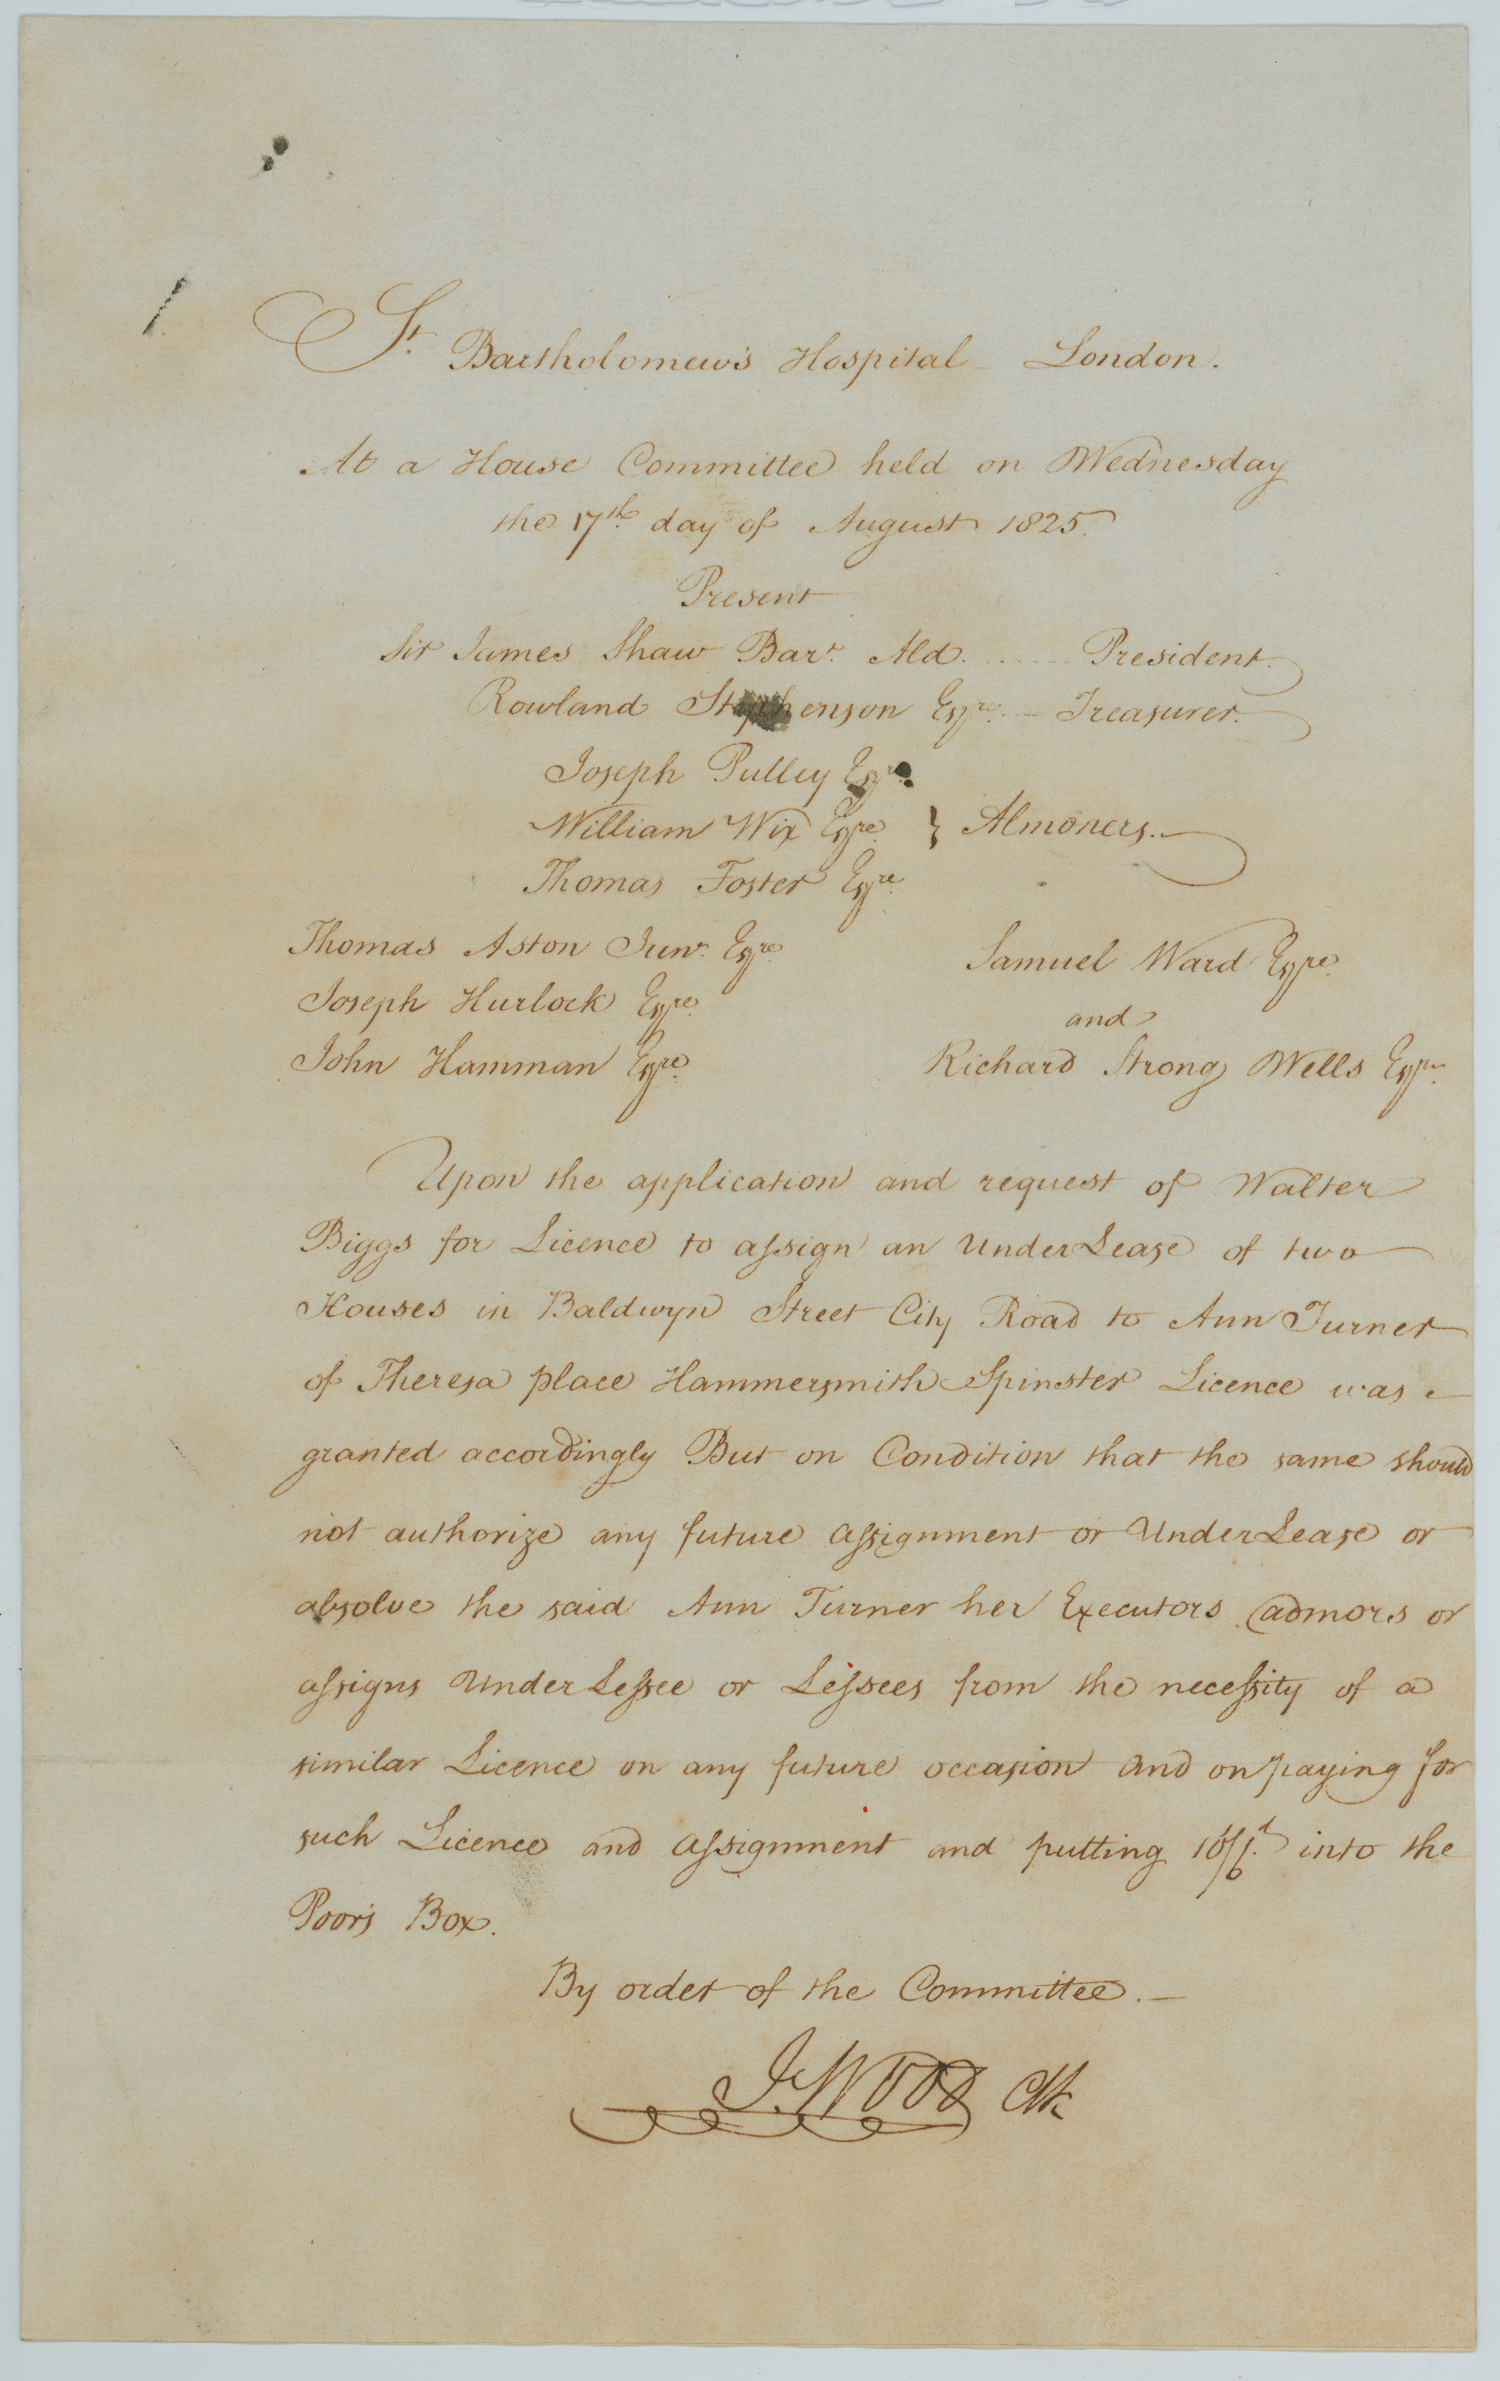 St. Bartholomew's Hospital London.
At a House Committee held on Wednesday
the 17th. day of August 1825.
Present
Sir James Shaw Bart. Ald. ..... President.
Rowland Stephenson Esqre. — Treasurer.
Joseph Pulley Esqre.
William Wix Esqre. } Almoners. —
Thomas Foster Esqre.
Thomas Aston Junr. Esqre. Samuel Ward Esqre.
Joseph Hurlock Esqre. and
John Hamman Esqre. Richard Strong Wells Esqre.
Upon the application and request of Walter
Biggs for Licence to assign an UnderLease of two
Houses in Baldwyn Street City Road to Ann Turner
of Theresa place Hammersmith Spinster Licence was
granted accordingly But on Condition that the same should
not authorize any future assignment or UnderLease or
absolve the said Ann Turner her Executors admors or
assigns UnderLessee or Lessees from the necessity of a
similar Licence on any future occasion and on paying for
such Licence and assignment and putting into the
Poor's Box.
By order of the Committee. —
J. Wood Clk